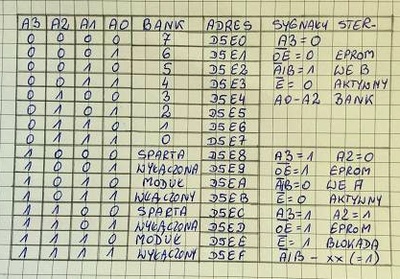 A3 A2 A1 A0 BANK ADRES SYGNAŁY STER-
0 0 0 0 7 D5E0 A3=0
0 0 0 1 6 D5E1 OE=0 EPROM
0 0 1 0 5 D5E2 A/B=1 WE B
0 0 1 1 4 D5E3 E=0 AKTYWNY
0 1 0 0 3 D5E4 A0-A2 BANK
0 1 0 1 2 D5E5
0 1 1 0 1 D5E6
0 1 1 1 0 D5E7
1 0 0 0 SPARTA D5E8 A3=1 A2=0
1 0 0 1 WYŁĄCZONA D5E9 OE=1 EPROM
1 0 1 0 MODUŁ D5EA A/B=0 WE A
1 0 1 1 WŁĄCZONY D5EB E=0 AKTYWNY
1 1 0 0 SPARTA D5EC A3=1 A2=1
1 1 0 1 WYŁĄCZONA D5ED OE=1 EPROM
1 1 1 0 MODUŁ D5EE E=1 BLOKADA
1 1 1 1 WYŁĄCZONY D5EF A/B - XX (=1)